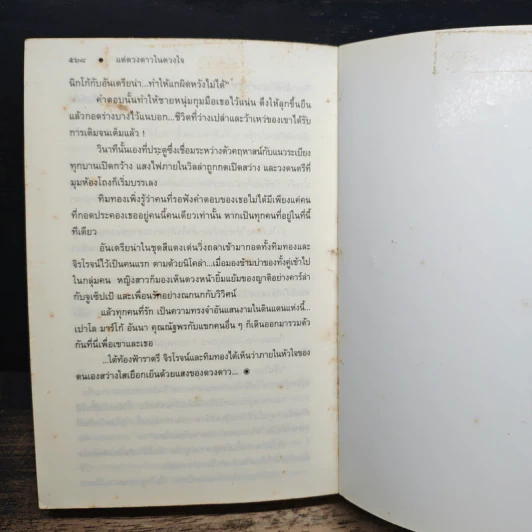 ๕๖๘ ● แด่ดวงดาวในดวงใจ
นิกโก้กับอันเดรียน่า...ทำให้แกผิดหวังไม่ได้"
คำตอบนั้นทำให้ชายหนุ่มกุมมือเธอไว้แน่น ดึงให้ลุกขึ้นยืน
แล้วกอดร่างบางไว้แนบอก...ชีวิตที่ว่างเปล่าและว้าเหว่ของเขาได้รับ
การเติมจนเต็มแล้ว !
วินาทีนั้นเองที่ประตูซึ่งเชื่อมระหว่างตัวคฤหาสน์กับแนวระเบียง
ทุกบานเปิดกว้าง แสงไฟภายในวิลล่าถูกกดเปิดสว่าง และวงดนตรีที่
มุมห้องโถงก็เริ่มบรรเลง
ทิมทองเพิ่งรู้ว่าคนที่รอฟังคำตอบของเธอไม่ได้มีเพียงแค่คน
ที่กอดประคองเธออยู่คนนี้คนเดียวเท่านั้น หากเป็นทุกคนที่อยู่ในที่นี้
ทีเดียว
อันเดรียน่าในชุดสีแดงเด่นวิ่งถลาเข้ามากอดทั้งทิมทองและ
จิรโรจน์ไว้เป็นคนแรก ตามด้วยนิโคล่า...เมื่อมองข้ามบ่าของทั้งคู่เข้าไป
ในกลุ่มคน หญิงสาวก็มองเห็นดวงหน้ายิ้มแย้มของญาติอย่างคาร์ล่า
กับจูเซ็ปเป้ และเพื่อนรักอย่างณกนกกับวิวิศน์
แล้วทุกคนที่รัก เป็นความทรงจำอันแสนงามในดินแดนแห่งนี้...
เปาโล มาร์โก้ อันนา คุณณัฐพรกับแขกคนอื่น ๆ ก็เดินออกมารวมตัว
กันที่นี่เพื่อเขาและเธอ
...ใต้ท้องฟ้าราตรี จิรโรจน์และทิมทองได้เห็นว่าภายในหัวใจของ
ตนเองสว่างไสวเยือกเย็นด้วยแสงของดวงดาว... ◉